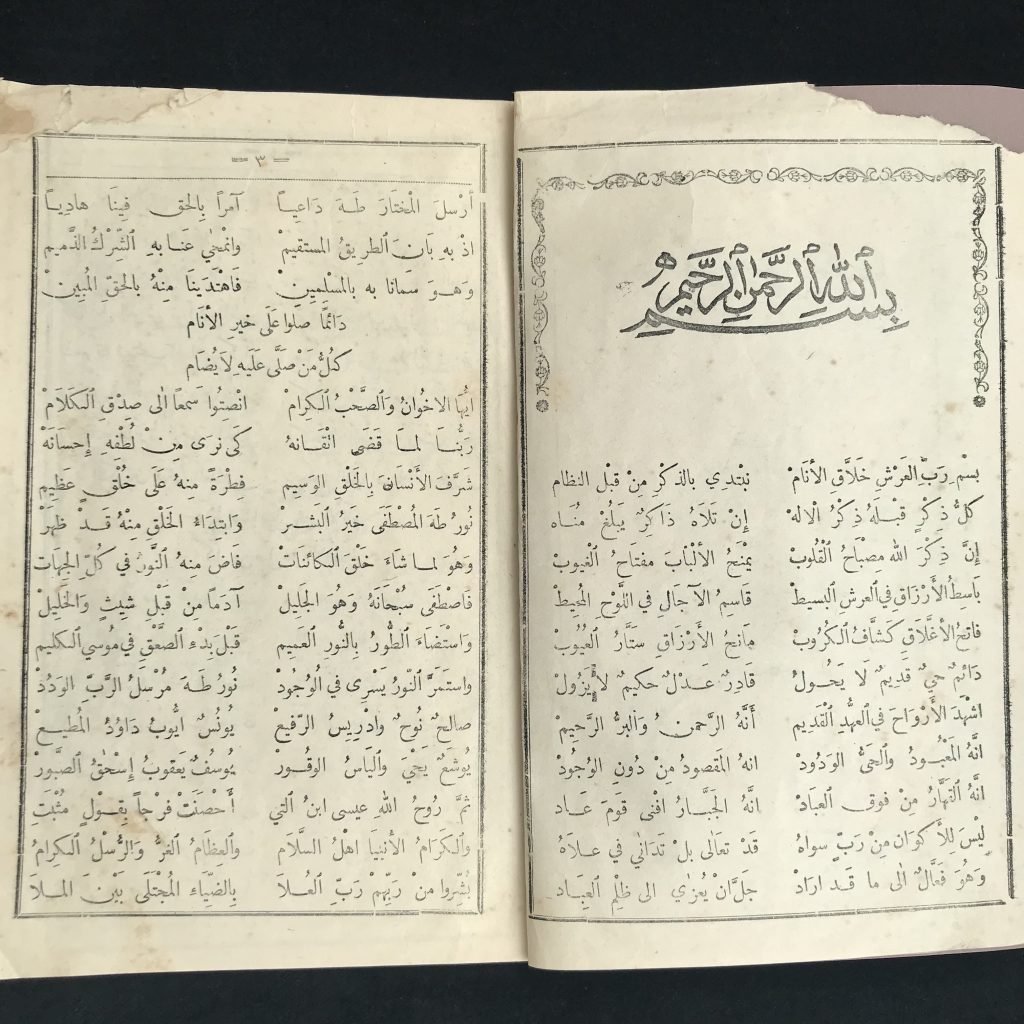 بِسْمِ اللهِ الرَّحْمٰنِ الرَّحِيْمِ
بِسْمِ رَبِّ العَرْشِ خَلاَّقِ الأَنَامْ نَبْتَدِي بِالذِّكْرِ مِنْ قَبْلِ النظام
كلُّ ذِكْرٍ قَبْلَهُ ذِكْرُ الْالهْ إِنْ تَلاَهُ ذَاكِرٌ يَبلُغْ مُنَاه
إِنَّ ذِكْرَ الله مِصْبَاحُ القُلُوبْ يمْنَحُ الألْبَابَ مفتَاحُ الْغُيوبْ
بَاسِطُ الأَرْزَاقِ في العرشِ البَسيطْ قاسِمُ الآجَالِ في اللَّوْحِ المُحيطْ
فاتحُ الأَغْلاَقِ كَشَّافُ الكُرُوبْ مَانحُ الأَرْزَاقِ ستَّارُ العُيُوبْ
دَائمٌ حيٌ قَدِيمٌ لَا يَحُولُ قَادِرٌ عَدْلٌ حكيمٌ لا يَزُولْ
اشْهَدَ الأَرْوَاحَ في العهْدِ القَدِيم أَنَّهُ الرَّحمنُ وَالْبرُّ الرَّحِيمْ
انَّهُ المَعْبُودُ وَالحَىُّ الوَدُودْ انهُ المَقصودُ مِنْ دُونِ الوُجُودْ
انَّهُ القهَّارُ مِنْ فوقِ العبادْ انَّهُ الجَبَّارُ افنى قومَ عَاد
لَيْسَ للأَكوَانِ مِنْ رَبٍّ سِواهْ قَدْ تعَالَى بَلْ تدَانَي في عُلاَهْ
وَهُوَ فَعَّالٌ الى ما قَد ارَادْ جَلَّ انْ يُعزٰي الى ظلْمِ العِبَاد
— ٣ —
أرْسلَ المُخْتَارَ طَهَ دَاعِياً آمراً بِالحق فِينَا هادِياً
اذْ بهِ بَانَ الطرِيقُ المستقيمْ وانمْحٰي عَنا بهِ الشِّرْكُ الذَّميم
وَهوَ سَمَانا به بالمسْلِمِينْ فَاهْتَدَينَا مِنْهُ بالحَقِّ المُبينْ
دَائماً صلوا عَلَى خيرِ الأنَام
كلُّ مَنْ صَلَّى عَلَيهِ لاَ يُضَام
ايُّهَا الاخْوَانُ وَالصَّحْبُ الكِرَامْ انْصِتُوا سَمعاً الى صِدْقِ الكَلاَمْ
رَبُّنَا لمَا قَضَى اتْقَانهُ كَى نرَى مِنْ لُطْفِهِ إحْسَانَهْ
شَرَّفَ الأَنْسَانَ بِالخَلْقِ الوَسيم فِطْرَةً مِنهُ عَلَى خُلْقٍ عَظِيم
نُورُ طَهَ المُصْطَفَى خَيرُ البَشر وَابتِدَاءُ الخَلْقِ مِنْهُ قَدْ ظهَرْ
وَهُوَ لما شَاءَ خَلْقَ الكائنَاتْ فَاضَ مِنهُ النُّورُ في كُلِّ الجهَاتْ
فَاصْطَفَى سُبْحَانَهُ وَهْوَ الجَلِيلْ آدَماً مِنْ قَبْلِ شِيثٍ وَالخَلِيلْ
وَاسْتَضَاءَ الطُّورُ بالنُّورِ العَمِيم قَبْلَ بَدْءِ الصَّعْقِ في مُوسي الكليم
واستمَرَّ النُّورُ يَسْرِى في الوُجُودْ نُورُ طَهَ مُرْسَلُ الرَّبِّ الوَدُدْ
صَالحٌ نُوحٌ وَادْرِيسُ الرَّفِيعْ يُونُسٌ ايُّوبُ دَاوُدُ المُطِيعْ
يُوشَعٌ يَحْيَ وَالْيَاسُ الوَقور يُوسُفٌ يَعقوبُ إسْحٰقُ الصَّبُورْ
ثمَّ رُوحُ اللهِ عيسى ابنُ التي أحْصَنَتْ فَرْجاً بِقولٍ مُثْبَتِ
وَالكِرَامُ الأَنْبيَا اهْلُ السَّلاَم وَالعِظَامُ الغُرُّ وَالرُّسْلُ الكِرَامُ
بُشِّرُوا مِنْ رَبِّهِمْ رَبِّ العُلاَ بِالضِّيَاءِ المُجْتَلَى بَيْنَ الملَا